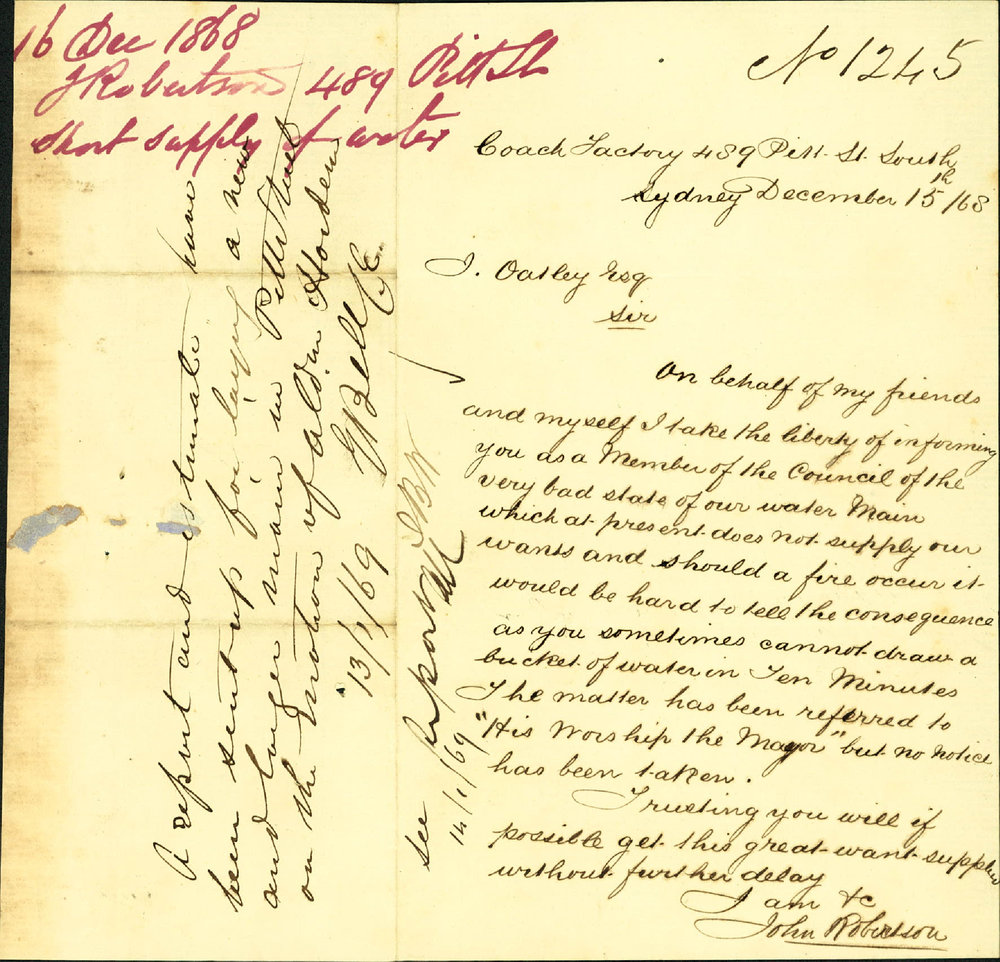 16 Dec 1868
J Robertson 489 Pitt St
short supply of water
No 1245
Coach Factory 489 Pitt St. South
Sydney December 15th/68
J. Oatley Esq
Sir
On behalf of my friends
and myself I take the liberty of informing
you as a Member of the Council of the
very bad state of our water Main
which at present does not supply our
wants and should a fire occur it
would be hard to tell the consequence
as you sometimes cannot draw a
bucket of water in Ten Minutes
The matter has been referred to
"His Worship the Mayor" but no notice
has been taken.
Trusting you will if
possible get this great want supplied
without further delay
I am &c
John Robertson
A report and estimate have
been sent up for laying a new
and larger main in Pitt Street
on the motion of Aldm Hordern
13/1/69 Bell CE
see report
14/1/69